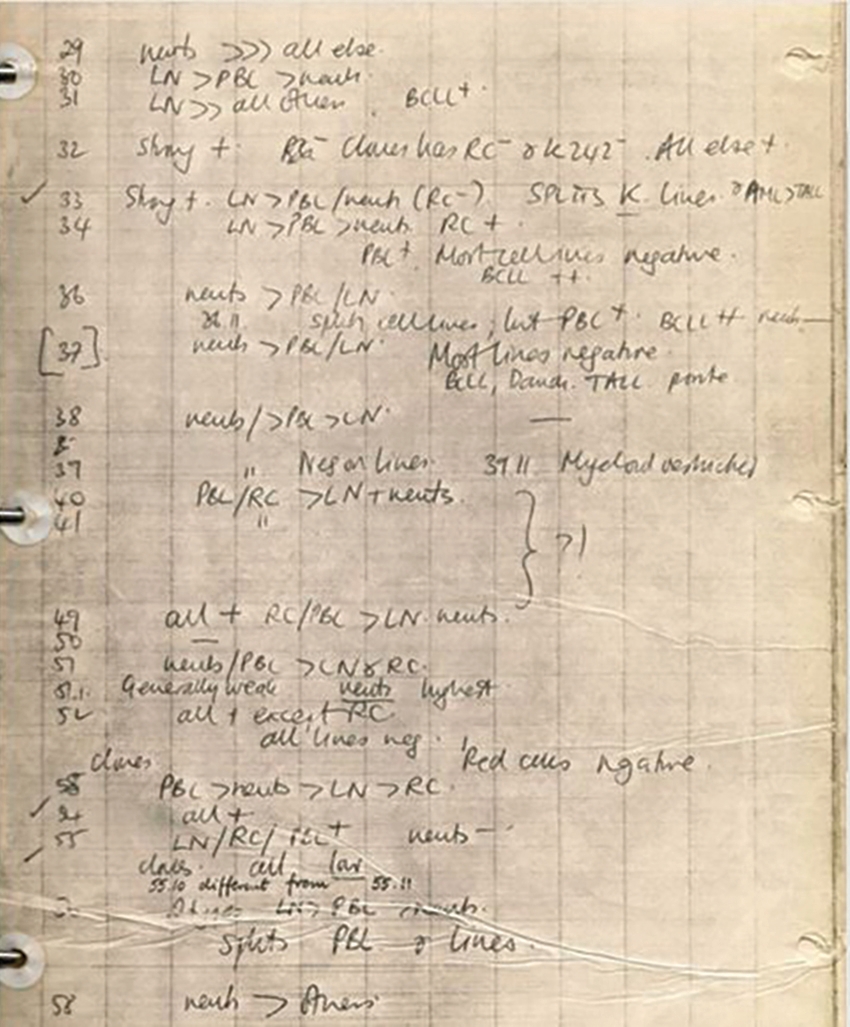 29 neuts >>> all else.
30 LN > PBL > neuts.
31 LN >> all others. BCLL+.
32 Strong +. clones has RC- & K242-. All else +.
✓ 33 Strong +. LN > PBL/neuts (RC-). SPLITS K lines. & AML > TALL
34 LN > PBL > neuts. RC +.
PBL+. Most cell lines negative.
BCLL ++.
36 neuts > PBL/LN.
splits cell lines, but PBL+. BCLL++ neuts—
[37] neuts > PBL/LN. Most lines negative.
BCLL, TALL
38 neuts/>PBL>LN. —
37 " Neg on lines. 37.11 Myeloid restricted
40 PBL/RC > LN + neuts.
41 " } >1
49 all + RC/PBL > LN. neuts.
50 —
51 neuts/PBL > LN & RC.
51.1. Generally weak neuts highest
52 all + except RC
all lines neg.
clones. Red cells ngative.
PBL > neuts > LN > RC.
✓ 54 all +
✓ 55 LN/RC/PBL+ neuts -
clones. all low
55.10 different from 55.11
LN > PBL neuts.
Splits PBL & lines.
58 neuts > others.